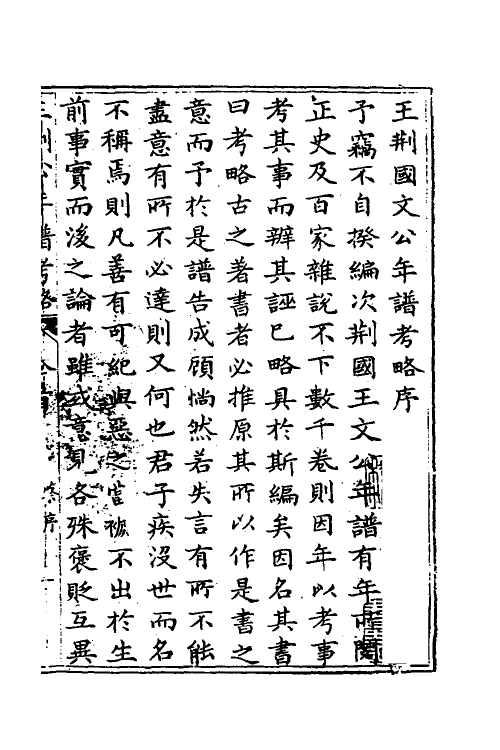 王荆國文公年譜考略序
予竊不自揆編次荆國王文公年譜有年所閱
正史及百家雜說不下數千卷則因年以考事
考其事而辨其誣已略具於斯編矣因名其書
曰考略古之著書者必推原其所以作是書之
意而予於是譜告成顧惝然若失言有所不能
盡意有所不必達則又何也君子疾沒世而名
不稱焉則凡善有可紀與惡之當褫不出於生
前事實而後之論者雖或意見各殊褒貶互異
王荆公年譜考略 序